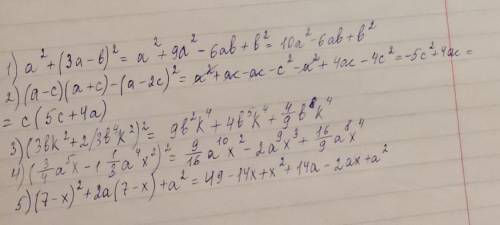 1) a² + (3a - b)² = a² + 9a² - 6ab + b² = 10a² - 6ab + b²
2) (a-c)(a+c) - (a-2c)² = a² + ac - ac - c² - a² + 4ac - 4c² = -5c² + 4ac =
= c(5c + 4a)
3) (3bk² + 2/3b⁴k²)² = 9b²k⁴ + 4b⁵k⁴ + 4/9 b⁸k⁴
4) (3/4 a⁵x - 1 1/3 a⁴x²)² = 9/16 a¹⁰x² - 2a⁹x³ + 16/9 a⁸x⁴
5) (7-x)² + 2a(7-x) + a² = 49 - 14x + x² + 14a - 2ax + a²